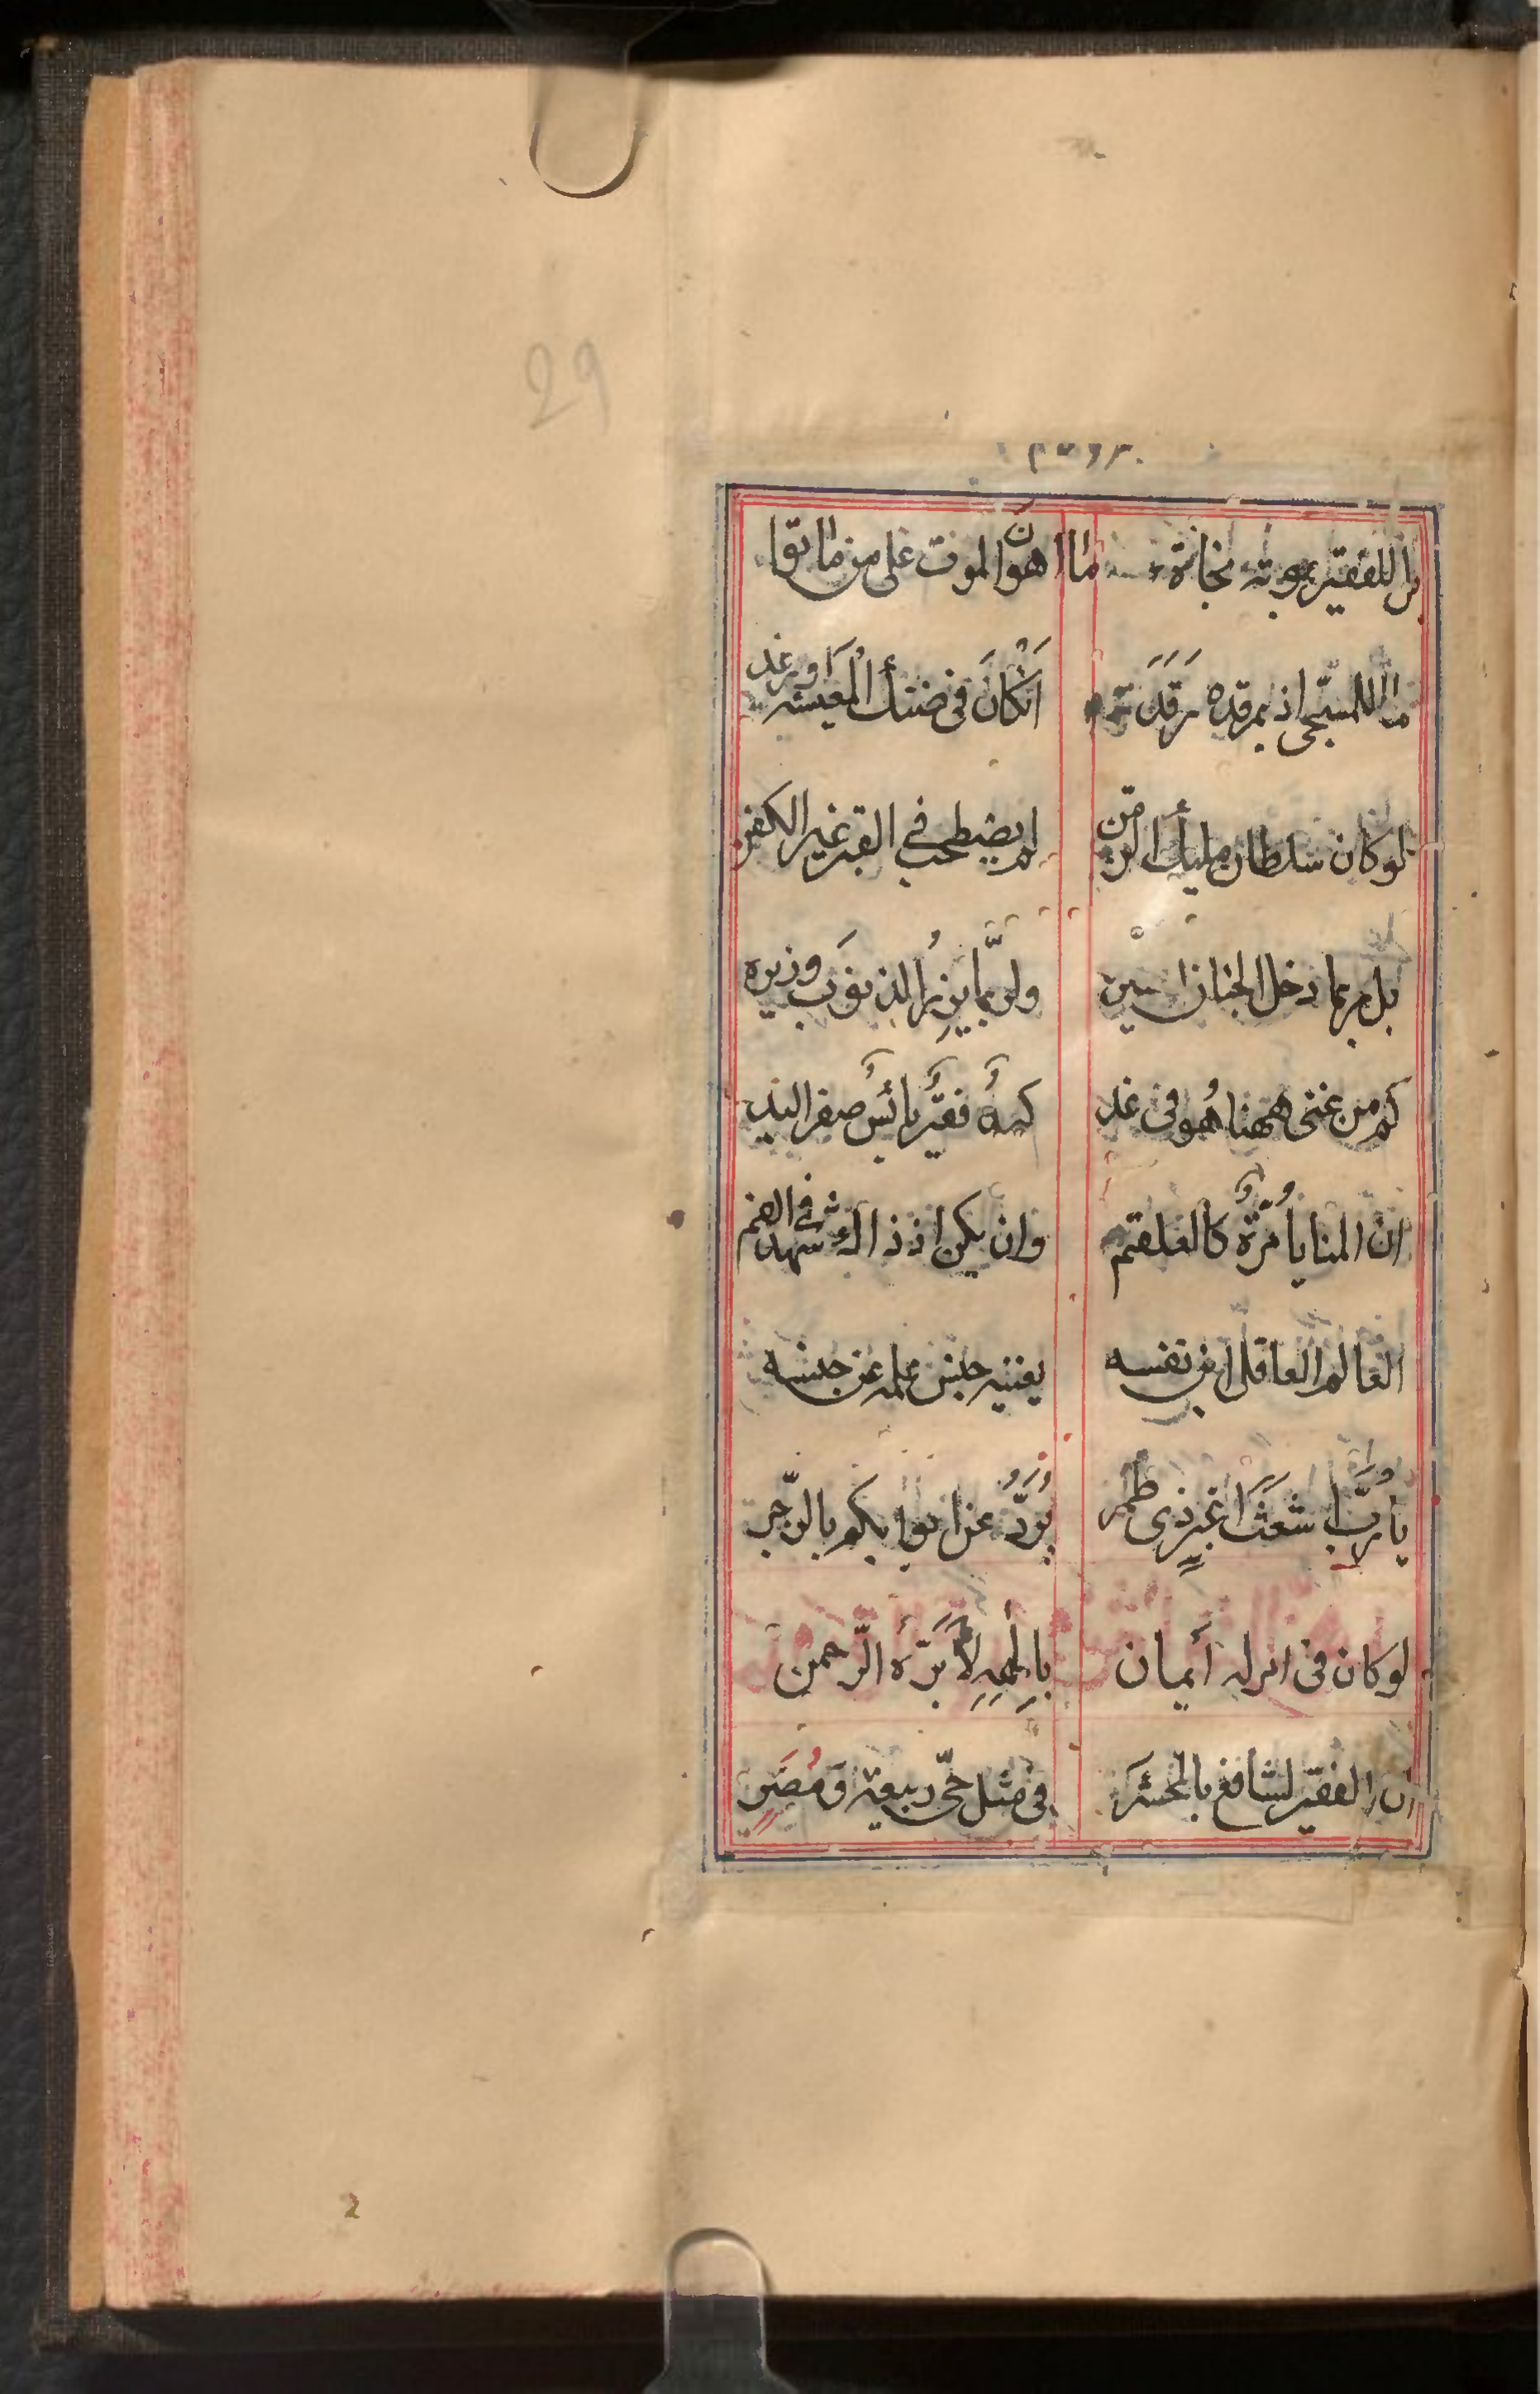 29
بل للفقير بموته نجاة ما اهون الموت على من ماتوا
ما للمسجى اذ بمرقده رقد اكان فى ضنك المعيشه او رغد
لو كان سلطان مليك الزمن لم يضطحب فى القبر غير الكفن
بل ربما دخل الجنان ولربما يزر الذنوب وزيره
كم من غنى ههنا هو فى غد كمه فقير بائس صفر اليد
ان المنايا مرة كالعلقم وان يكن اذ ذاك شهد فى الفم
العالم العاقل ابن نفسه يغنيه جنس علمه عن جنسه
يا رب اشعث اغبر ذى طمر يرد عن ابوابكم بالزجر
لو كان فى ايمان بالهه لأبره الرحمن
ان الفقير لشافع بالمحشر فى مثل حى ربيعة ومضر
2